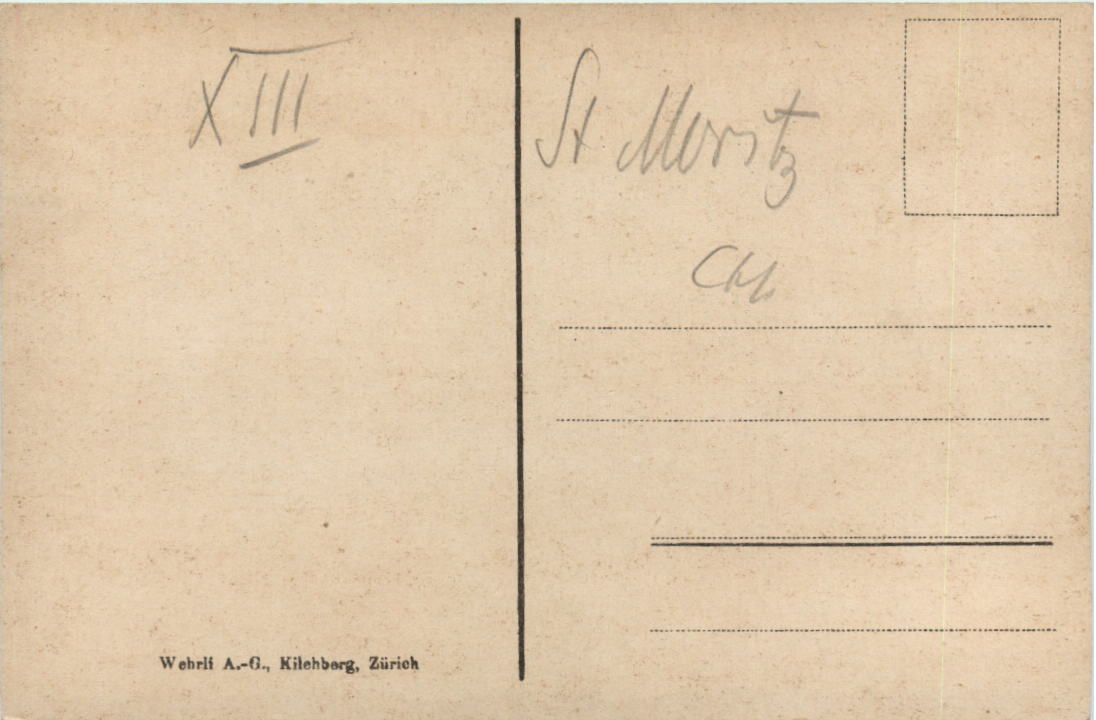 XIII
St. Moritz
Wehrli A.-G., Kilchberg, Zürich